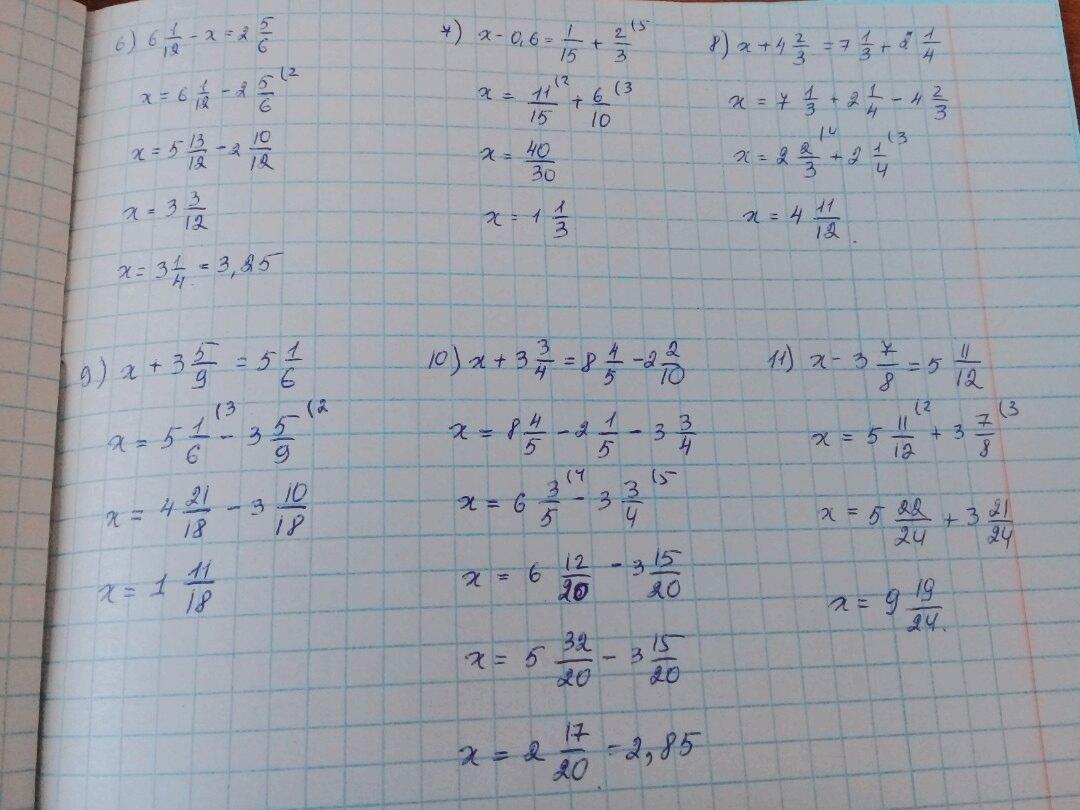 6) 6 1/12 - x = 2 5/6
x = 6 1/12 - 2 5/6 (2
x = 5 13/12 - 2 10/12
x = 3 3/12
x = 3 1/4 = 3,25
7) x - 0,6 = 1/15 + 2/3 (5
x = 11/15 (2 + 6/10 (3
x = 40/30
x = 1 1/3
8) x + 4 2/3 = 7 1/3 + 2 1/4
x = 7 1/3 + 2 1/4 - 4 2/3
x = 2 2/3 (4 + 2 1/4 (3
x = 4 11/12.
9) x + 3 5/9 = 5 1/6
x = 5 1/6 (3 - 3 5/9 (2
x = 4 21/18 - 3 10/18
x = 1 11/18
10) x + 3 3/4 = 8 4/5 - 2 2/10
x = 8 4/5 - 2 1/5 - 3 3/4
x = 6 3/5 (4 - 3 3/4 (5
x = 6 12/20 - 3 15/20
x = 5 32/20 - 3 15/20
x = 2 17/20 - 2,85
11) x - 3 7/8 = 5 11/12
x = 5 11/12 (2 + 3 7/8 (3
x = 5 22/24 + 3 21/24
x = 9 19/24.